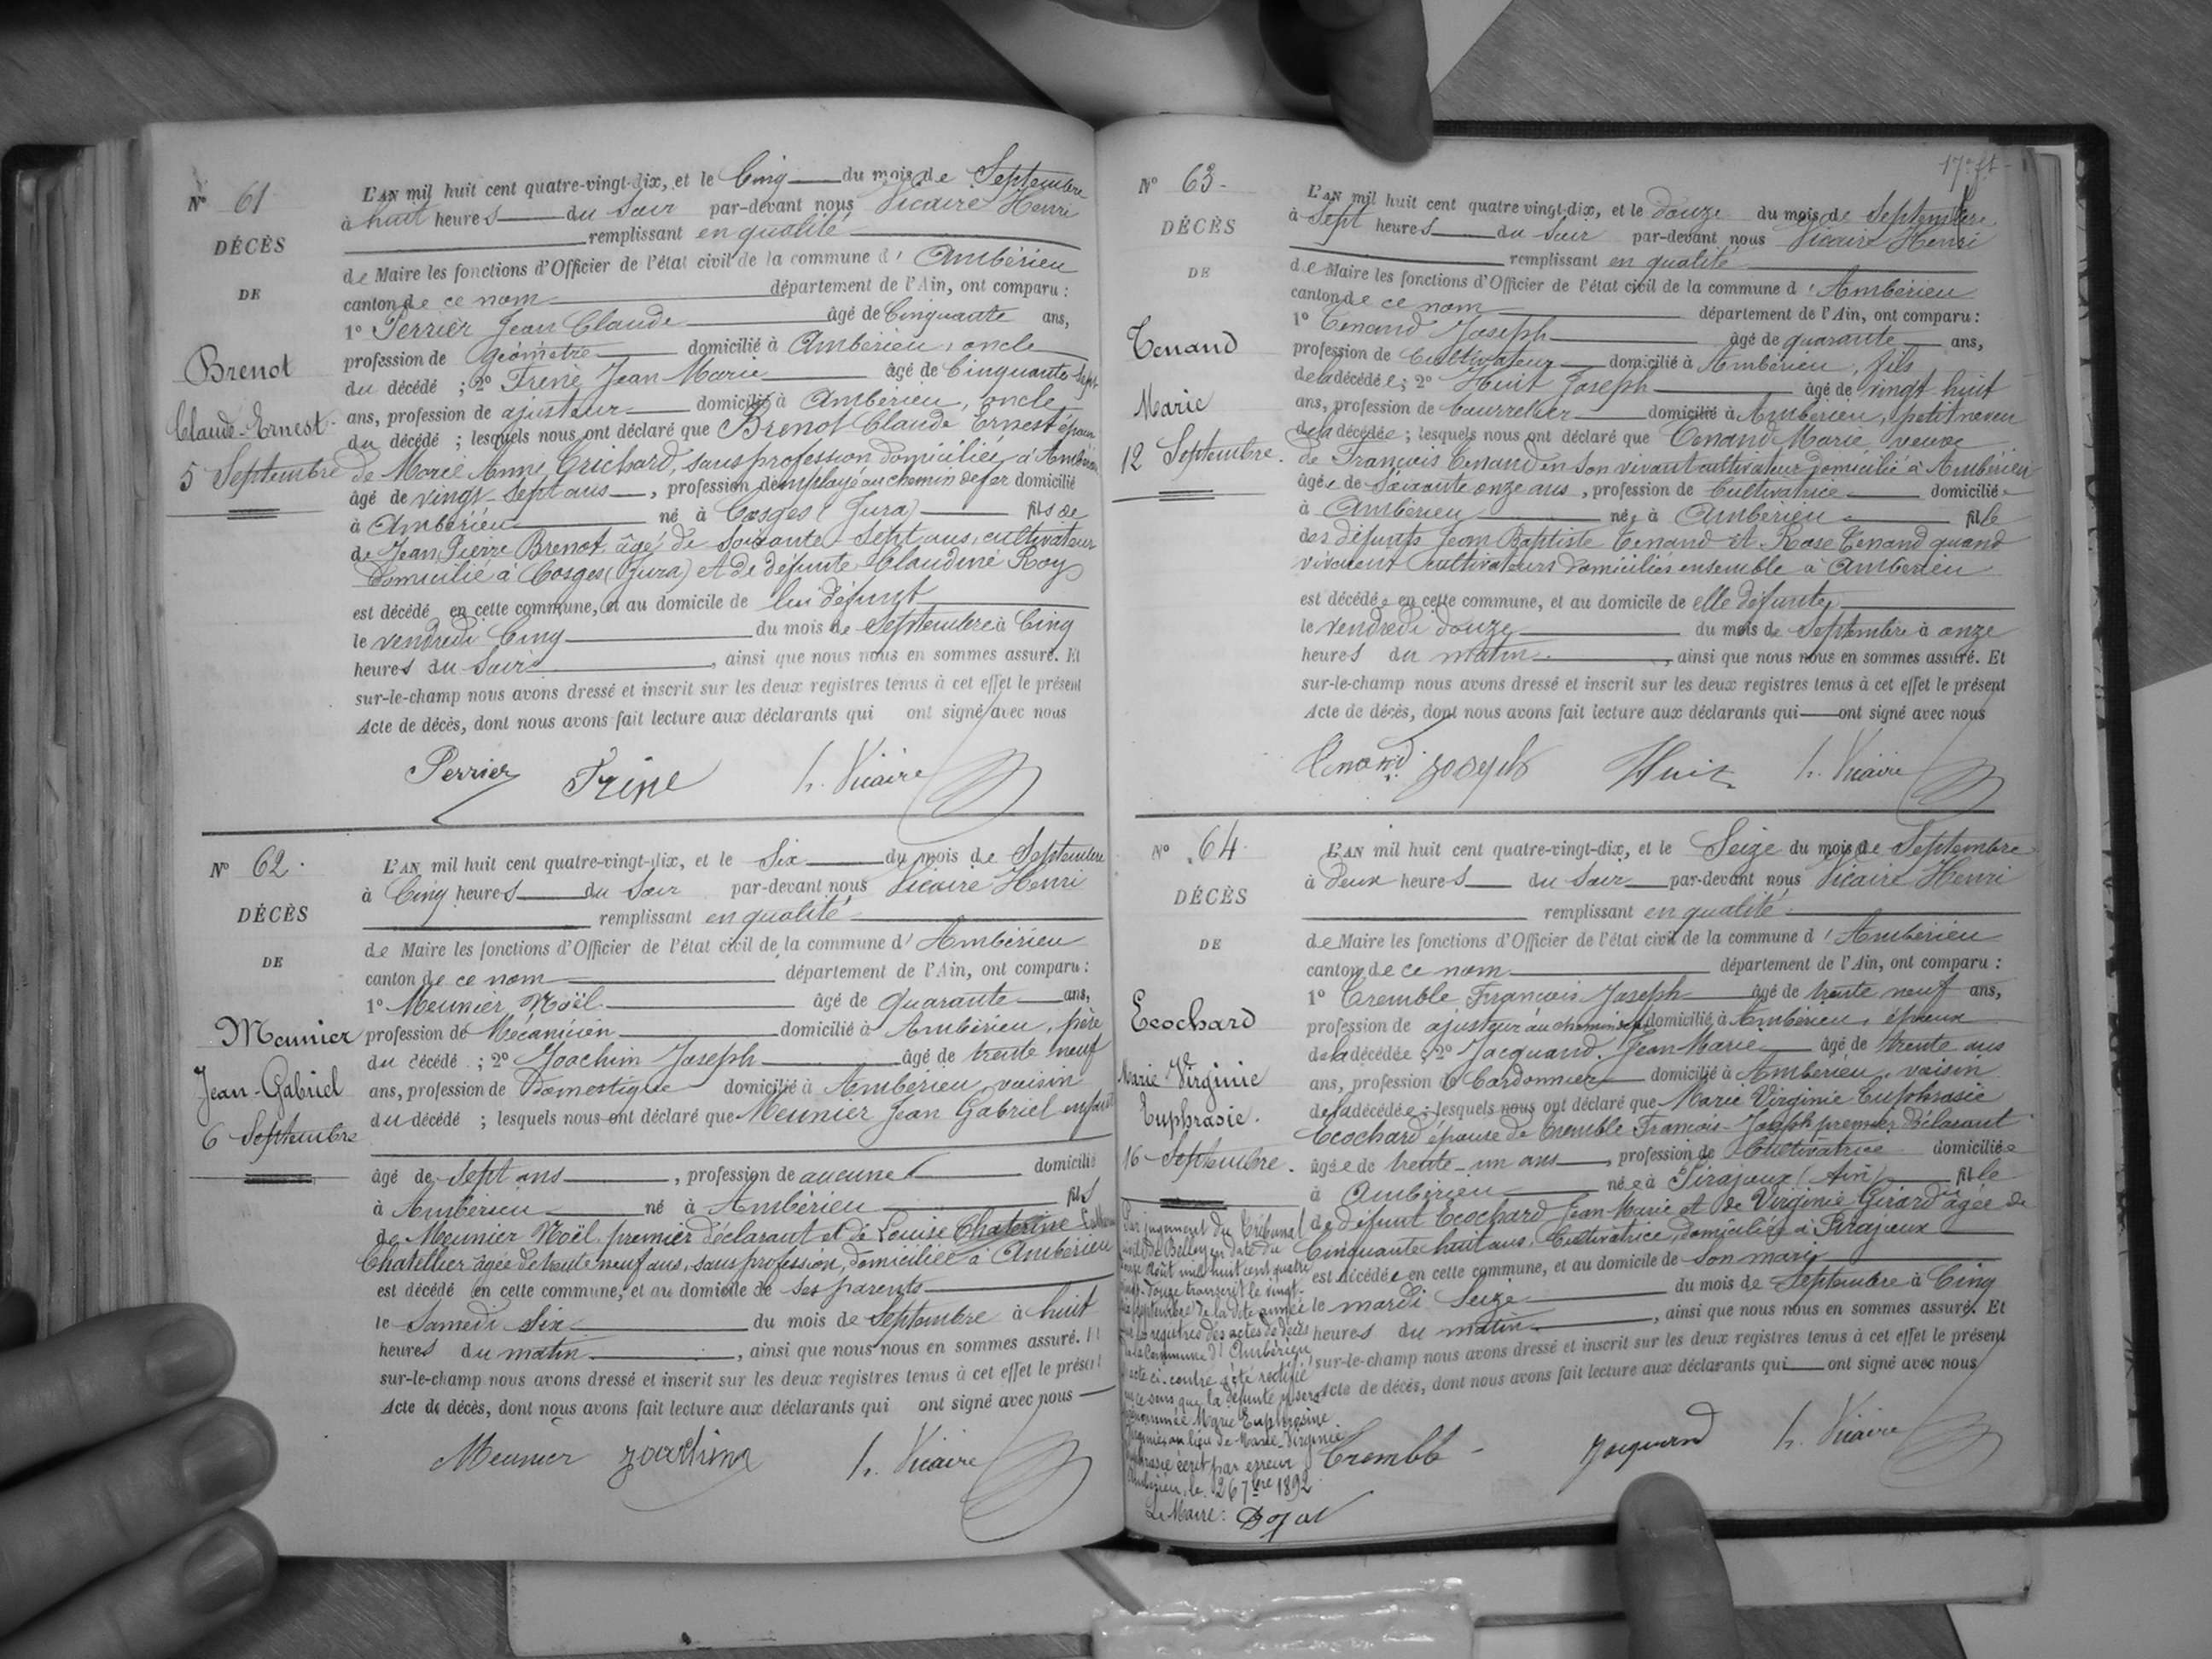 N° 61
DÉCÈS
DE
Brenot
Claude-Ernest
5 Septembre
L'AN mil huit cent quatre-vingt-dix, et le Cinq du mois de Septembre
à huit heures du Soir par-devant nous Vicaire Henri
remplissant en qualité
de Maire les fonctions d'Officier de l'état civil de la commune d'Ambérieu
canton de ce nom département de l'Ain, ont comparu :
1° Perrier Jean Claude âgé de Cinquante ans,
profession de géomètre domicilié à Ambérieu, oncle
du décédé ; 2° Frene Jean Marie âgé de Cinquante sept
ans, profession de ajusteur domicilié à Ambérieu, oncle
du décédé ; lesquels nous ont déclaré que Brenot Claude Ernest époux
de Marie Anne Grichard, sans profession domiciliée à Ambérieu
âgé de vingt-sept ans, profession d'employé au chemin de fer domicilié
à Ambérieu né à Cosges (Jura) fils de
de Jean Pierre Brenot, âgé de soixante-sept ans, cultivateur
domicilié à Cosges (Jura) et de défunte Claudine Roy
est décédé en cette commune, et au domicile de lui défunt
le vendredi Cinq du mois de Septembre à Cinq
heures du Soir, ainsi que nous nous en sommes assuré. Et
sur-le-champ nous avons dressé et inscrit sur les deux registres tenus à cet effet le présent
Acte de décès, dont nous avons fait lecture aux déclarants qui ont signé avec nous
Perrier Frene h. Vicaire
N° 62
DÉCÈS
DE
Meunier
Jean-Gabriel
6 Septembre
L'AN mil huit cent quatre-vingt-dix, et le Six du mois de Septembre
à Cinq heures du Soir par-devant nous Vicaire Henri
remplissant en qualité
de Maire les fonctions d'Officier de l'état civil de la commune d'Ambérieu
canton de ce nom département de l'Ain, ont comparu :
1° Meunier Noël âgé de quarante ans,
profession de Mécanicien domicilié à Ambérieu, père
du décédé ; 2° Joachim Joseph âgé de trente neuf
ans, profession de Domestique domicilié à Ambérieu, voisin
du décédé ; lesquels nous ont déclaré que Meunier Jean Gabriel enfant
âgé de sept ans, profession de aucune domicilié
à Ambérieu né à Ambérieu fils
de Meunier Noël premier déclarant et de Louise Chaterine
Chatellier âgée de trente neuf ans, sans profession, domiciliée à Ambérieu
est décédé en cette commune, et au domicile de ses parents
le Samedi Six du mois de Septembre à huit
heures du matin, ainsi que nous nous en sommes assuré. Et
sur-le-champ nous avons dressé et inscrit sur les deux registres tenus à cet effet le présent
Acte de décès, dont nous avons fait lecture aux déclarants qui ont signé avec nous
Meunier Joachim h. Vicaire
17° ft
N° 63
DÉCÈS
DE
Tenand
Marie
12 Septembre
L'AN mil huit cent quatre vingt-dix, et le douze du mois de Septembre
à Sept heures du Soir par-devant nous Vicaire Henri
remplissant en qualité
de Maire les fonctions d'Officier de l'état civil de la commune d'Ambérieu
canton de ce nom département de l'Ain, ont comparu :
1° Tenand Joseph âgé de quarante ans,
profession de Cultivateur domicilié à Ambérieu, fils
de la décédée ; 2° Huit Joseph âgé de vingt huit
ans, profession de bourrelier domicilié à Ambérieu, petit neveu
de la décédée ; lesquels nous ont déclaré que Tenand Marie veuve
de François Tenand en son vivant cultivateur domicilié à Ambérieu
âgée de Soixante onze ans, profession de Cultivatrice domiciliée
à Ambérieu née à Ambérieu fille
des défunts Jean Baptiste Tenand et Rose Tenand quand
vivaient cultivateurs domiciliés ensemble à Ambérieu
est décédée en cette commune, et au domicile de elle défunte
le Vendredi douze du mois de Septembre à onze
heures du matin, ainsi que nous nous en sommes assuré. Et
sur-le-champ nous avons dressé et inscrit sur les deux registres tenus à cet effet le présent
Acte de décès, dont nous avons fait lecture aux déclarants qui ont signé avec nous
Tenand Joseph Huit h. Vicaire
N° 64
DÉCÈS
DE
Ecochard
Marie-Virginie
Euphrasie.
16 Septembre.
L'AN mil huit cent quatre-vingt-dix, et le Seize du mois de Septembre
à Deux heures du Soir par-devant nous Vicaire Henri
remplissant en qualité
de Maire les fonctions d'Officier de l'état civil de la commune d'Ambérieu
canton de ce nom département de l'Ain, ont comparu :
1° Tremble François Joseph âgé de trente neuf ans,
profession de ajusteur au chemin de fer domicilié à Ambérieu, époux
de la décédée ; 2° Jacquand Jean Marie âgé de trente ans
ans, profession de Cordonnier domicilié à Ambérieu, voisin
de la décédée ; lesquels nous ont déclaré que Marie Virginie Euphrasie
Ecochard épouse de Tremble François-Joseph premier déclarant
âgée de trente-un ans, profession de Cultivatrice domiciliée
à Ambérieu née à Birajoux (Ain) fille
de défunt Ecochard Jean-Marie et de Virginie Girard âgée de
Cinquante huit ans, Cultivatrice, domiciliée à Birajeux
est décédée en cette commune, et au domicile de son mari
le mardi Seize du mois de Septembre à Cinq
heures du matin, ainsi que nous nous en sommes assuré. Et
sur-le-champ nous avons dressé et inscrit sur les deux registres tenus à cet effet le présent
Acte de décès, dont nous avons fait lecture aux déclarants qui ont signé avec nous
Par jugement du Tribunal
civil de Belley en date du
août mil huit cent quatre
vingt-douze transcrit le vingt-
septembre de la dite année
sur les registres des actes de décès
de la Commune d'Ambérieu
l'acte ci-contre a été rectifié
en ce sens que la défunte y sera
prénommée Marie Euphrosine
Virginie au lieu de Marie-Virginie
Euphrasie écrit par erreur
Ambérieu, le 26 7bre 1892
Le Maire :
Trembb Jacquand h. Vicaire